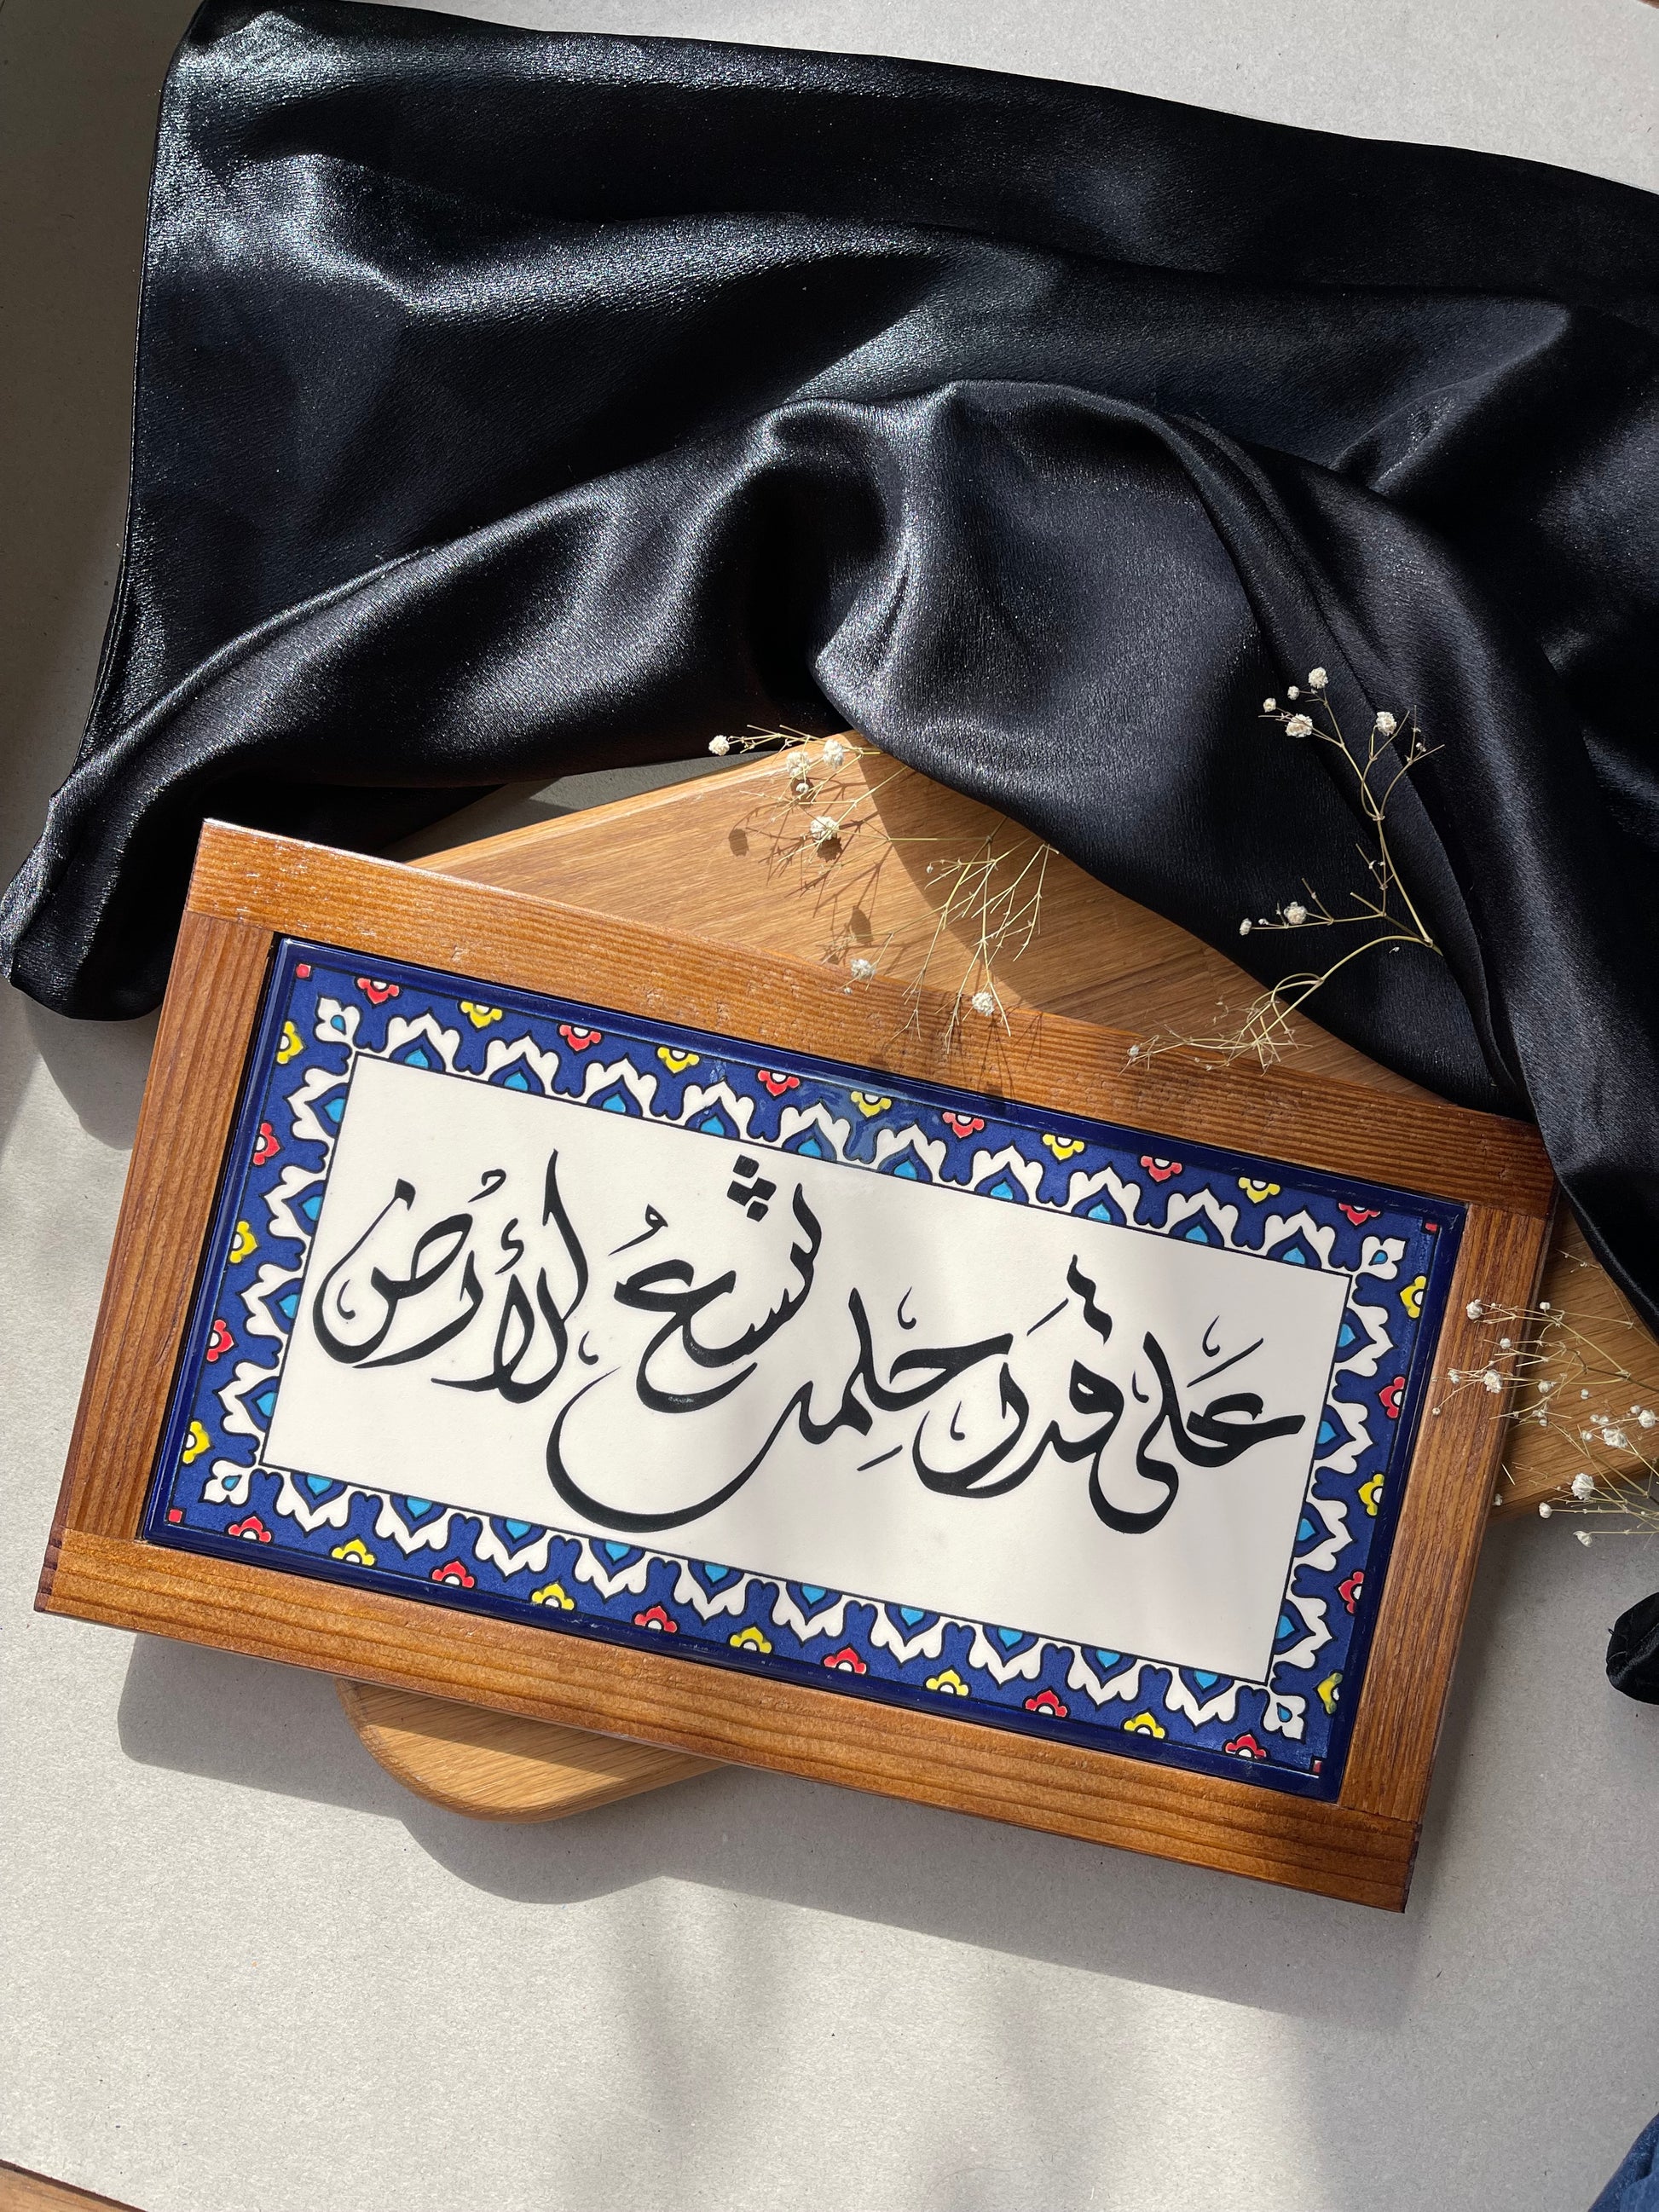 على قدر حِلمك تتسعُ الأرضُ